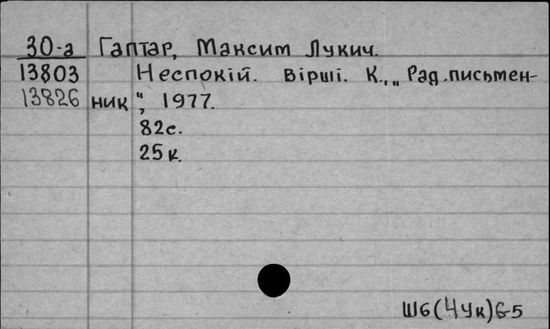 30-а Гаптар, Максим Лукич.
13803 Неспокій. Вірші. К., „Рад.письмен-
13826 ник“, 1977.
82с.
25к.
Ш6(4Ук)6-5